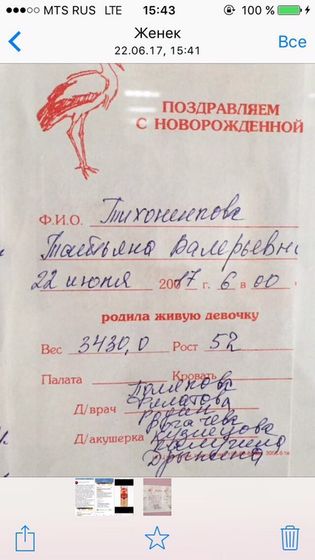 MTS RUS LTE 15:43 100 %
Женек
22.06.17, 15:41
Все
ПОЗДРАВЛЯЕМ
С НОВОРОЖДЕННОЙ
Ф.И.О. Тихоненкова
Татьяна Валерьевн
22 июня 20017 г. 6 в 00 ч
родила живую девочку
Вес 3430,0 Рост 52
Палата Кровать
Полякова
Филатова
Д/врач
Д/акушерка Кузнецова
Калугина
Дрынина